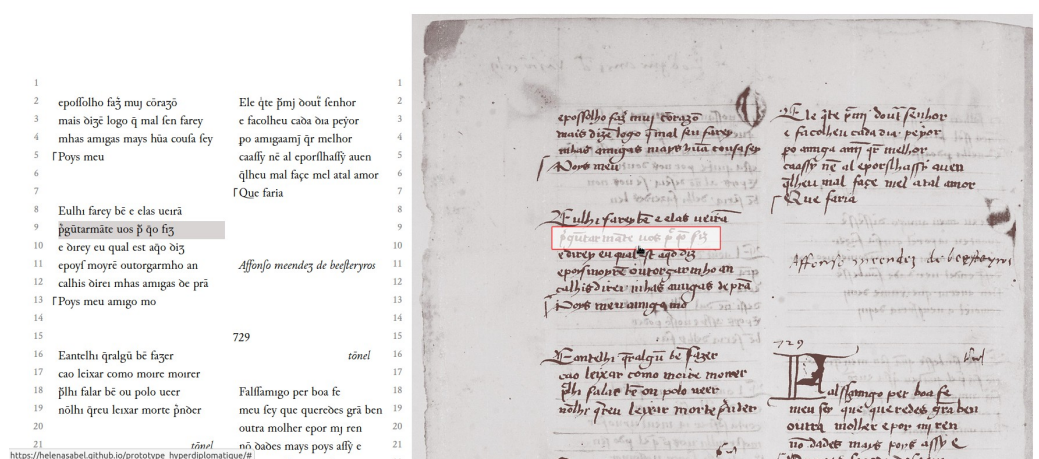 1
2 epoſſolho faʒ̃ muj cõraʒõ
3 mais diʒẽ logo q̃ mal ſen farey
4 mhas amigas mays hũa couſa ſey
5 ⸢Poys meu
6
7
8 Eulhi farey bẽ e elas ueirã
9 p̃gũtarmãte uos p̃ q̃o fiʒ
10 e direy eu qual est aq̃o diʒ
11 epoyſ moyrẽ outorgarmho an
12 calhis direi mhas amigas de prã
13 ⸢Poys meu amigo mo
14
15
16 Eantelhi q̃ralgũ bẽ faʒer
17 cao leixar como moire moirer
18 p̃lhi falar bẽ ou polo ueer
19 nõlhi q̃reu leixar morte p̃nder
20
21 tõnel
1
Ele q̃te p̃mj dout̃ ſenhor 2
e facolheu cada dia peẏor 3
po amigaamĩ q̃r melhor 4
caaſſy nẽ al eporſlhaſſy auen 5
q̃lheu mal façe mel atal amor 6
⸢Que faria 7
8
9
10
Affonſo meendeʒ de beeſteryros 11
12
13
14
729 15
tõnel 16
17
Falſſamigo per boa fe 18
meu ſey que queredes grã ben 19
outra molher epor mj ren 20
nõ dades mays poys aſſy e 21
https://helenasabel.github.io/prototype_hyperdiplomatique/#
epoſſolho faʒ̃ muj cõraʒõ
mais diʒẽ logo q̃ mal ſen farey
mhas amigas mays hũa couſa ſey
⸢Poys meu
Eulhi farey bẽ e elas ueirã
p̃gũtarmãte uos p̃ q̃o fiʒ
e direy eu qual est aq̃o diʒ
epoyſ moyrẽ outorgarmho an
calhis direi mhas amigas de prã
⸢Poys meu amigo mo
Eantelhi q̃ralgũ bẽ faʒer
cao leixar como moire moirer
p̃lhi falar bẽ ou polo ueer
nõlhi q̃reu leixar morte p̃nder
Ele q̃te p̃mj dout̃ ſenhor
e facolheu cada dia peẏor
po amiga amĩ q̃r melhor
caaſſy nẽ al eporſlhaſſy auen
q̃lheu mal façe mel atal amor
⸢Que faria
Affonſo meendeʒ de beeſteryros
729
tõnel
Falſſamigo per boa fe
meu ſey que queredes grã ben
outra molher epor mj ren
nõ dades mays poys aſſy e